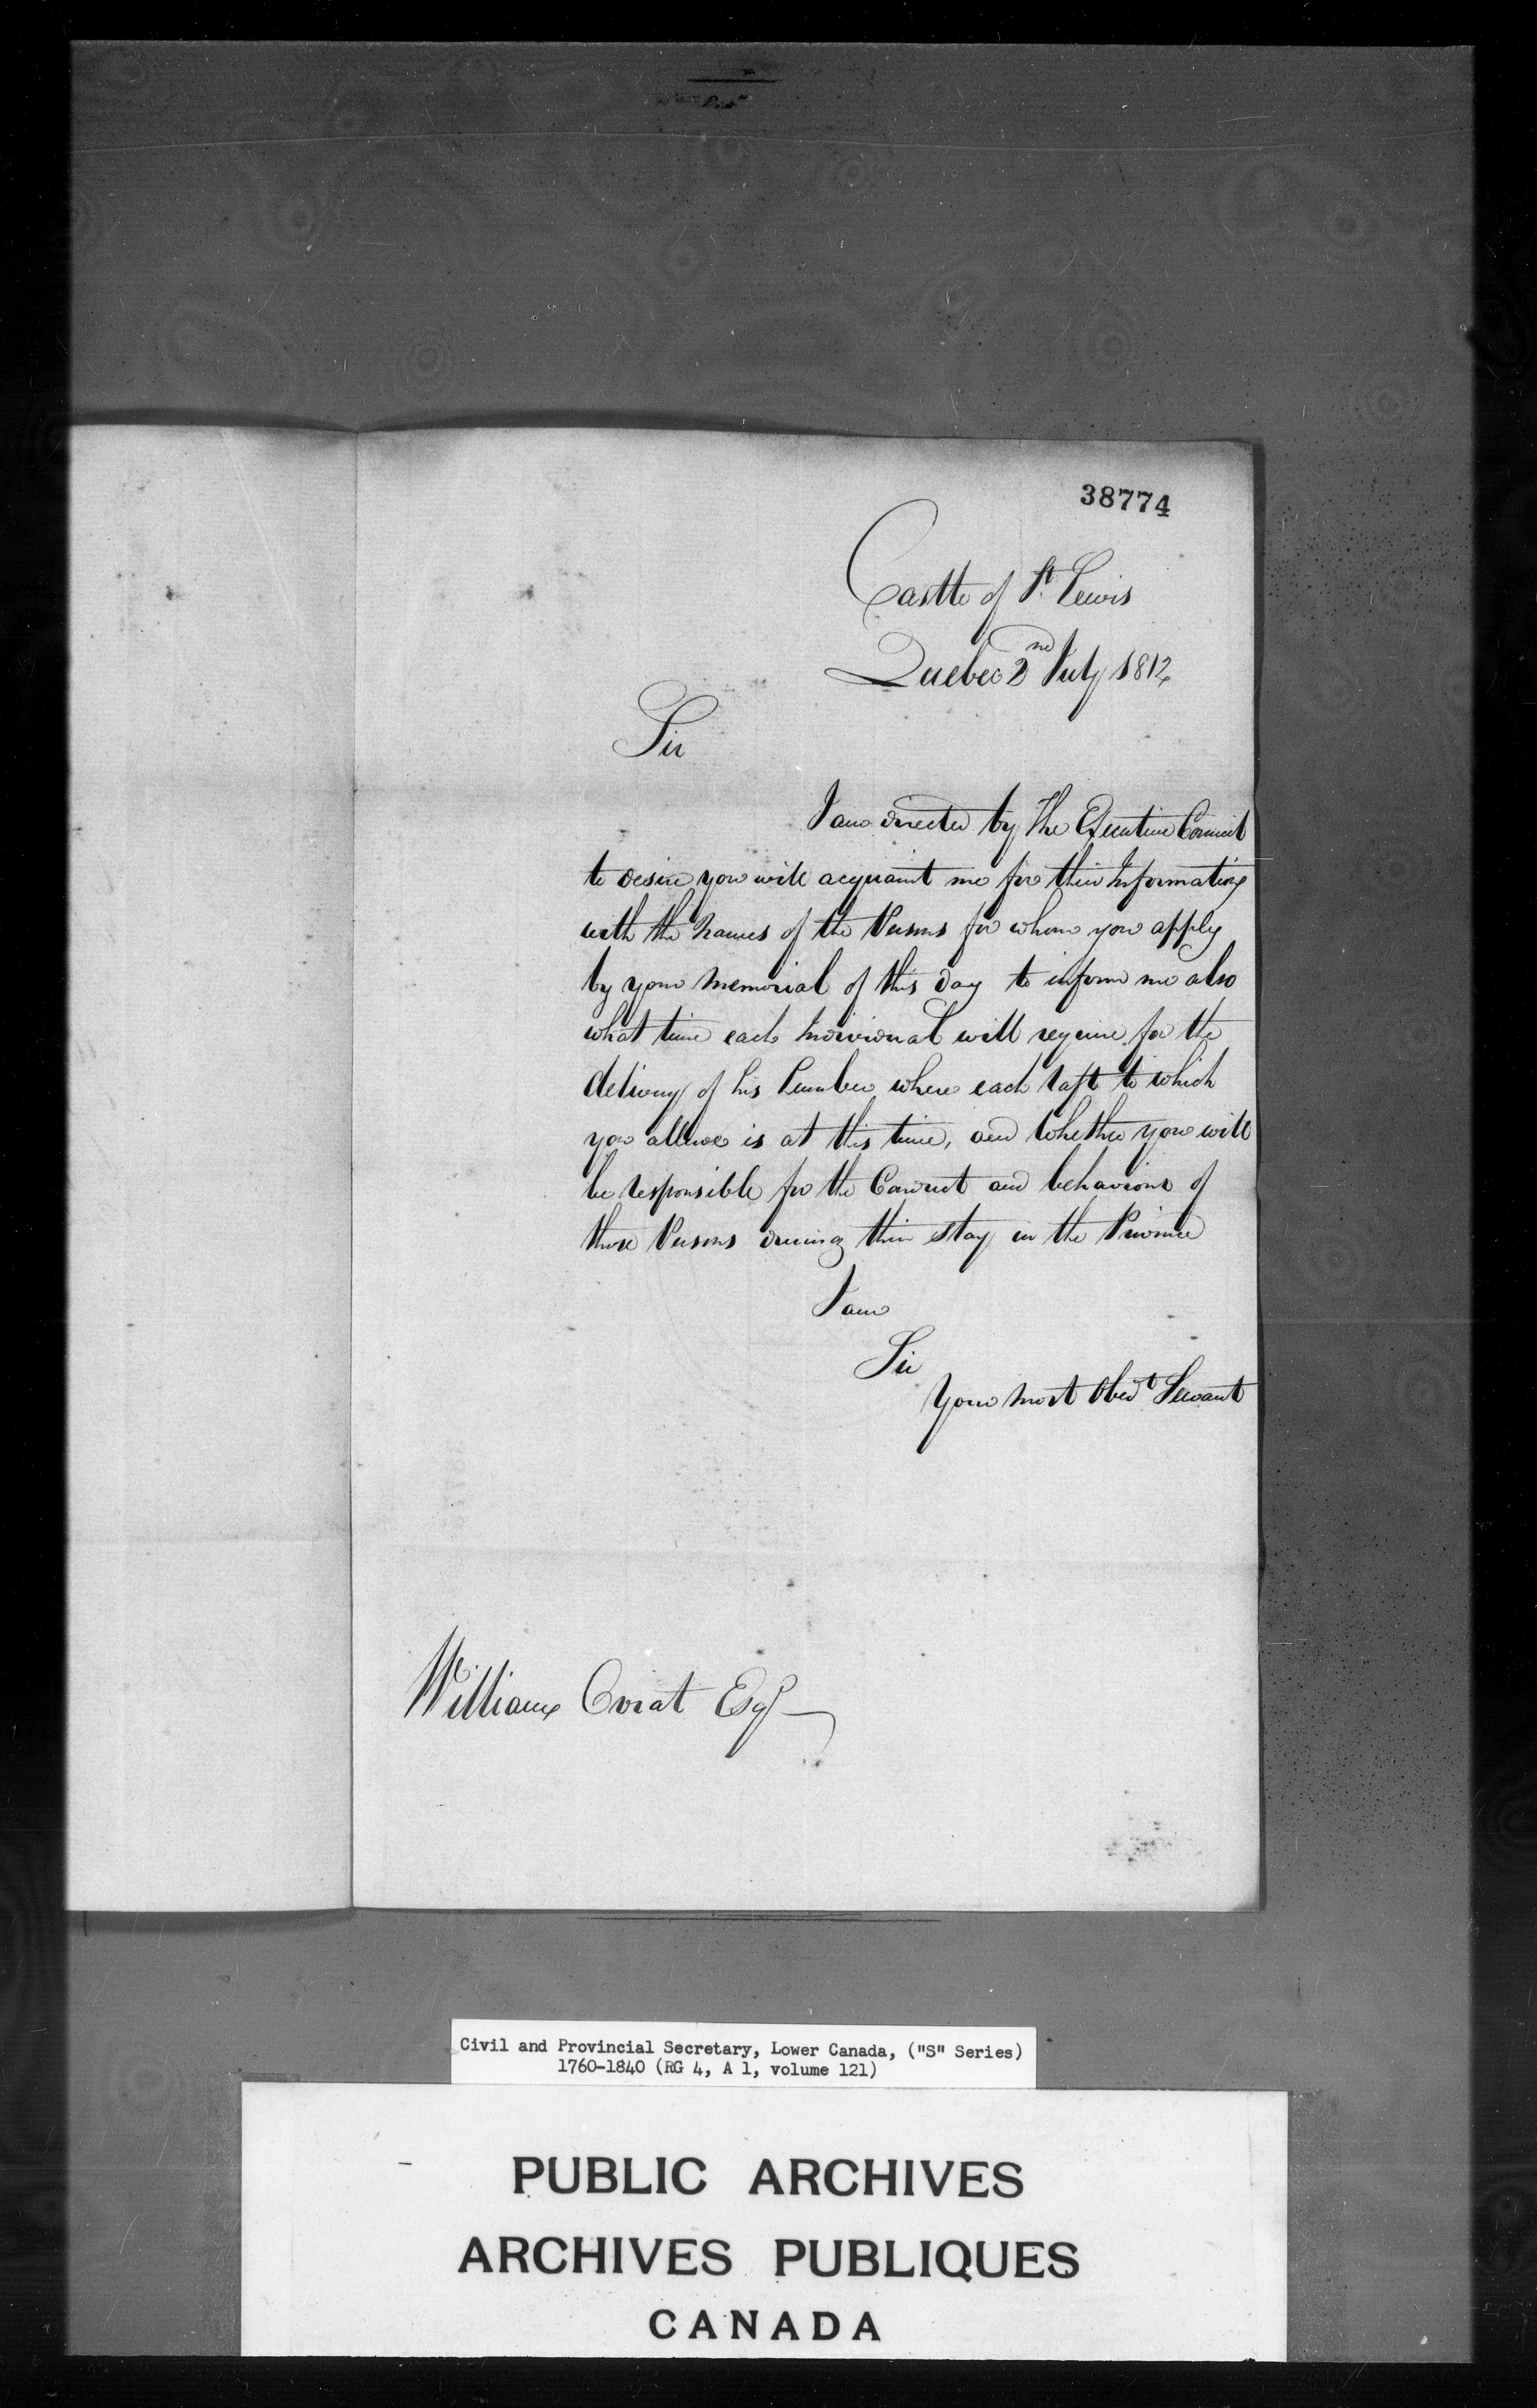 38774
Castle of St. Lewis
Quebec 2nd July 1812
Sir
I am directed by The Executive Council
to desire you will acquaint me for their Information
with the Names of the Persons for whom you apply
by your Memorial of this day to inform me also
what time each Individual will require for the
delivery of his Lumber where each raft to which
you allude is at this time, and Whether you will
be responsible for the Conduct and behaviour of
those Persons during their stay in the Province
I am
Sir
Your most Obedt Servant
William Oviat Esqr
Civil and Provincial Secretary, Lower Canada, ("S" Series)
1760-1840 (RG 4, A 1, volume 121)
PUBLIC ARCHIVES
ARCHIVES PUBLIQUES
CANADA